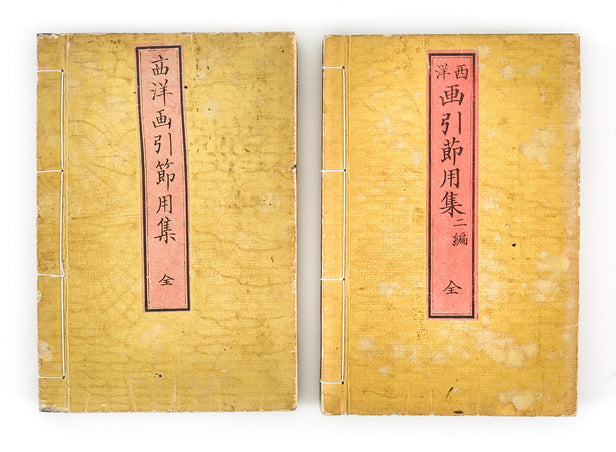 西洋画引節用集
全
西洋
画引節用集二編
全